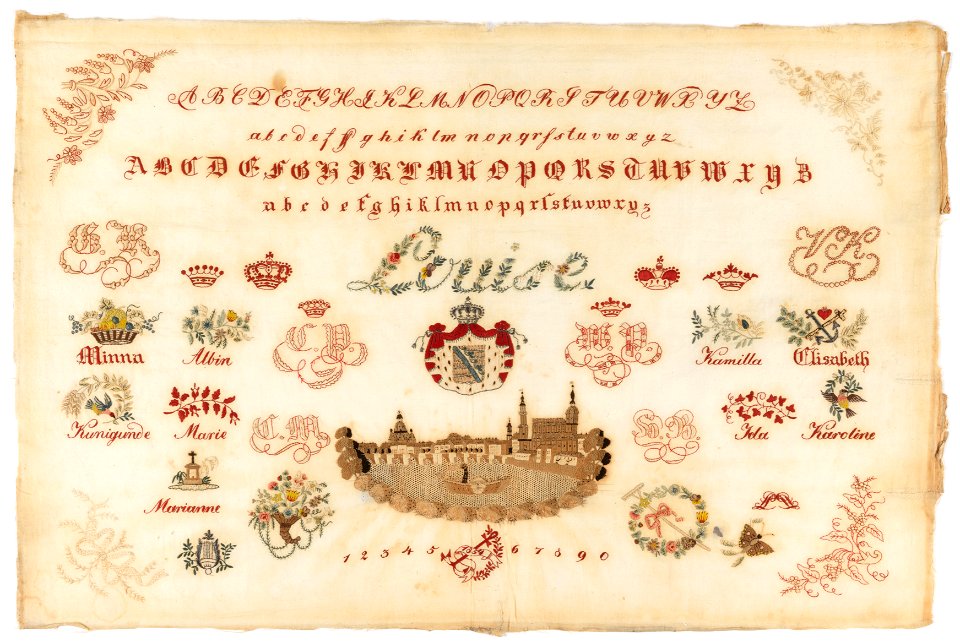 A B C D E F G H I K L M N O P Q R S T U V W X Y Z
a b c d e f ſſ g h i k l m n o p q r ſ s t u v w x y z
A B C D E F G H I K L M N O P Q R S T U V W X Y Z
a b c d e f g h i k l m n o p q r ſ s t u v w x y z
Louise
VK
Minna
Albin
Kamilla
Elisabeth
Kunigunde
Marie
C. M.
Ida
Karoline
Marianne
1 2 3 4 5 6 7 8 9 0